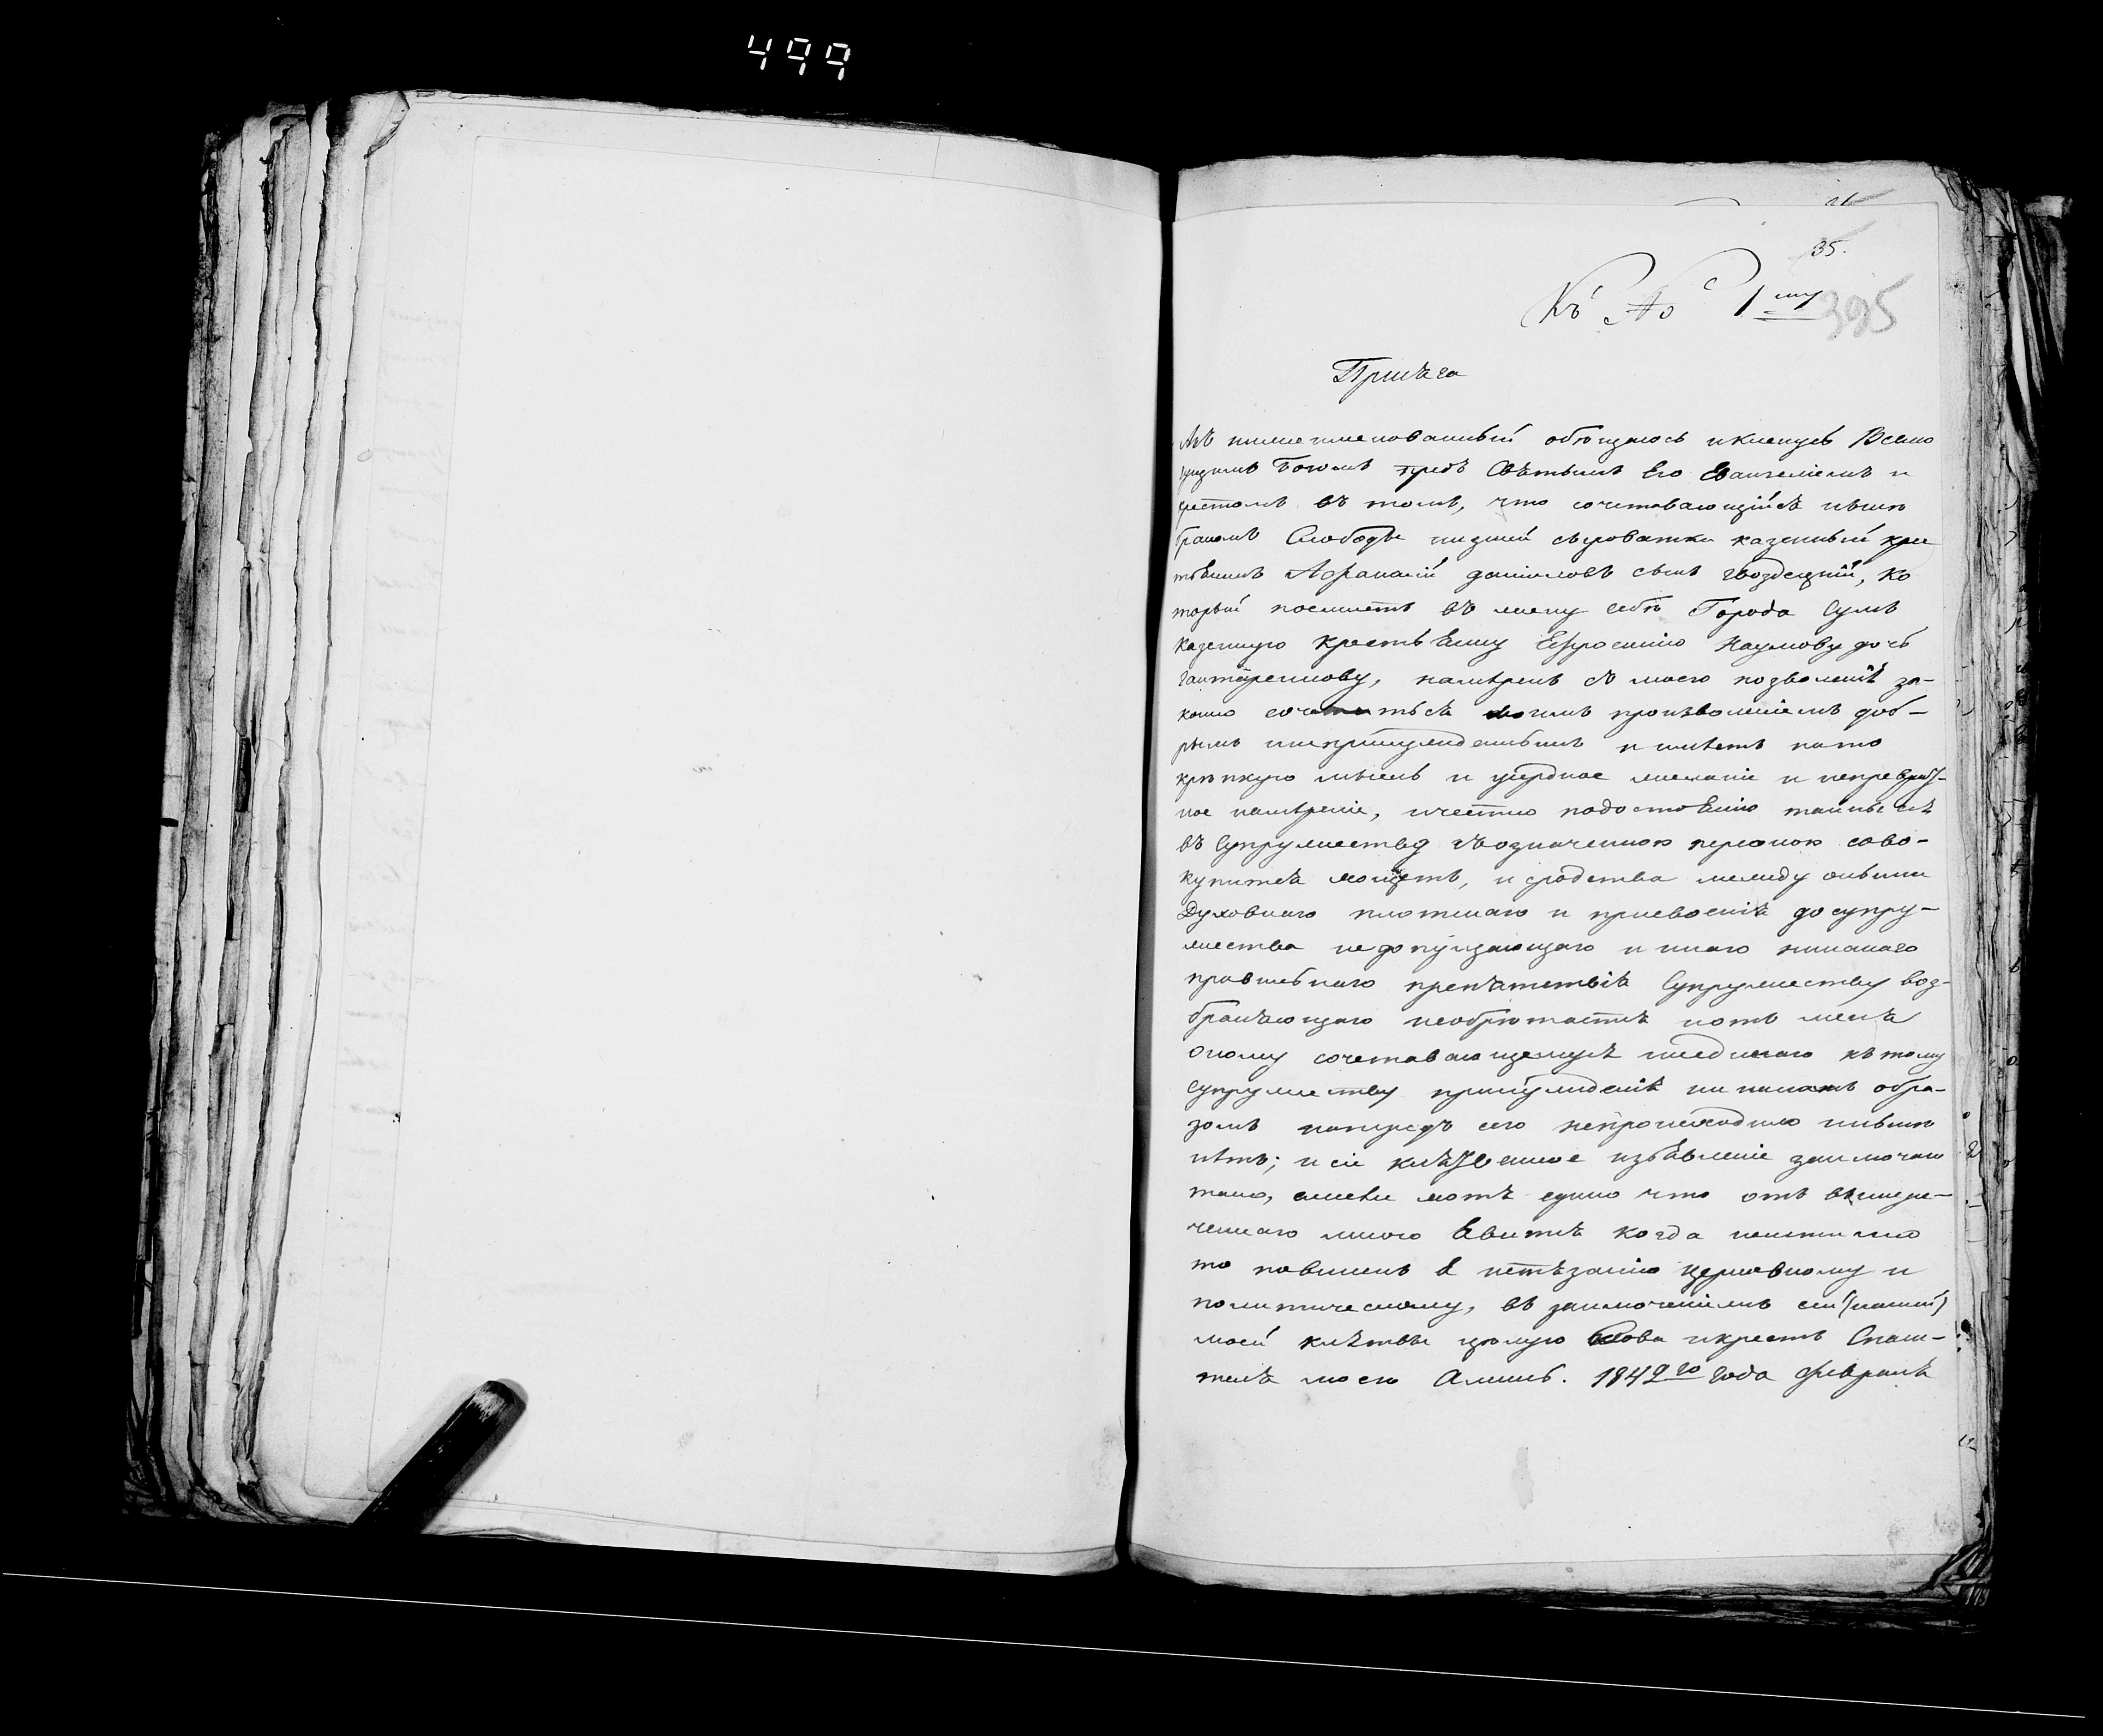 499
35.
Къ № 1му 395
Присѣга
Азъ нижеименованный обѣщаюсь икленусь Всемо
гущимъ Богомъ предъ Свѣтымъ Его Евангелiемъ и
крестомъ въ томъ, что сочетавающiйсѣ нынѣ
бракомъ Слободы низшей сыроватки казенный крес
тѣнинъ Афанасiй данiиловъ сынъ гвоздецкiй, ко
торый поемлетъ въ жену себѣ Города Сумъ
казенную крестьѣнку Ефросинiю Наумову дочь
намѣренъ съ моего позволенiѣ за-
конно сочетатьсѣ своимъ произволенiемъ доб-
рымъ инепринужденнымъ и имѣетъ на то
крѣпкую мысль и усердное желанiе и непревра
ное намѣренiе, ичестно подостоѣнiю тайны сеѣ
въ Супружество съозначенною персоною сово-
купитсѣ можетъ, и сродства между оными
Духовнаго плотскаго и присвоенiѣ до супру-
жества недопущающаго и инаго никакаго
правильнаго препѣтствiѣ Супружеству воз-
бранѣющаго необрѣтаетсѣ иотъ менѣ
оному сочетавающемусѣ къ тому
супружеству принужденiѣ ни какимъ обра-
зомъ напредъ сего непроисходило инынѣ
нѣтъ; и сiе клѣтвенное изъѣвленiе заключаю
тако, ежели хотѣ едино что отъ вышере-
ченнаго мною ѣвитсѣ когда неистинно
то повиненъ ѣ истѣзанiю церковному и
политическому, въ заключенiемъ сей
моей клѣтвы цѣлую слова икрестъ Спаси-
телѣ моего Аминь. 1842го года февралѣ